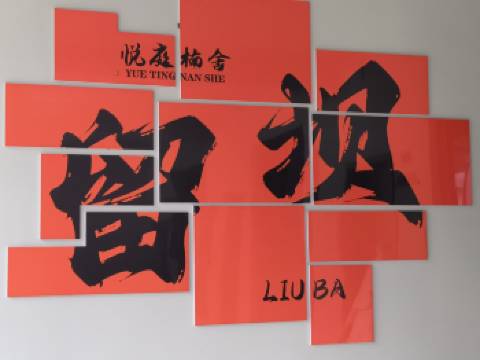 悦庭楠舍
YUE TING NAN SHE
留坝
LIU BA